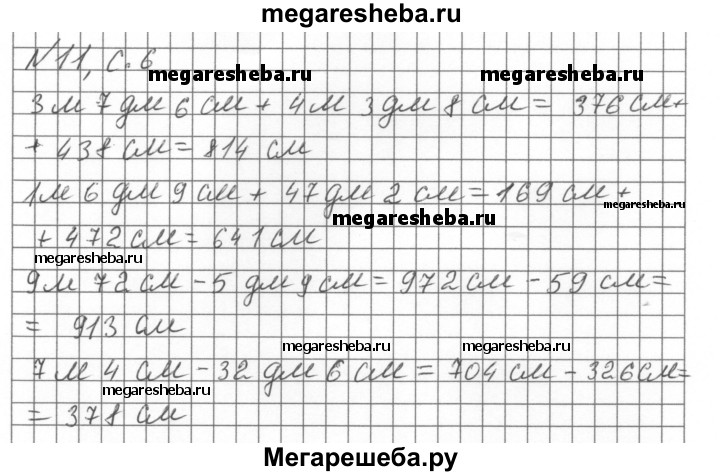 megaresheba.ru
№11, с. 6
megaresheba.ru megaresheba.ru
3 м 7 дм 6 см + 4 м 3 дм 8 см = 376 см +
+ 438 см = 814 см
1 м 6 дм 9 см + 47 дм 2 см = 169 см +
megaresheba.ru megaresheba.ru
+ 472 см = 641 см
megaresheba.ru
9 м 72 см - 5 дм 9 см = 972 см - 59 см =
= 913 см
megaresheba.ru megaresheba.ru
7 м 4 см - 32 дм 6 см = 704 см - 326 см =
megaresheba.ru
= 378 см
Мегарешеба.ру